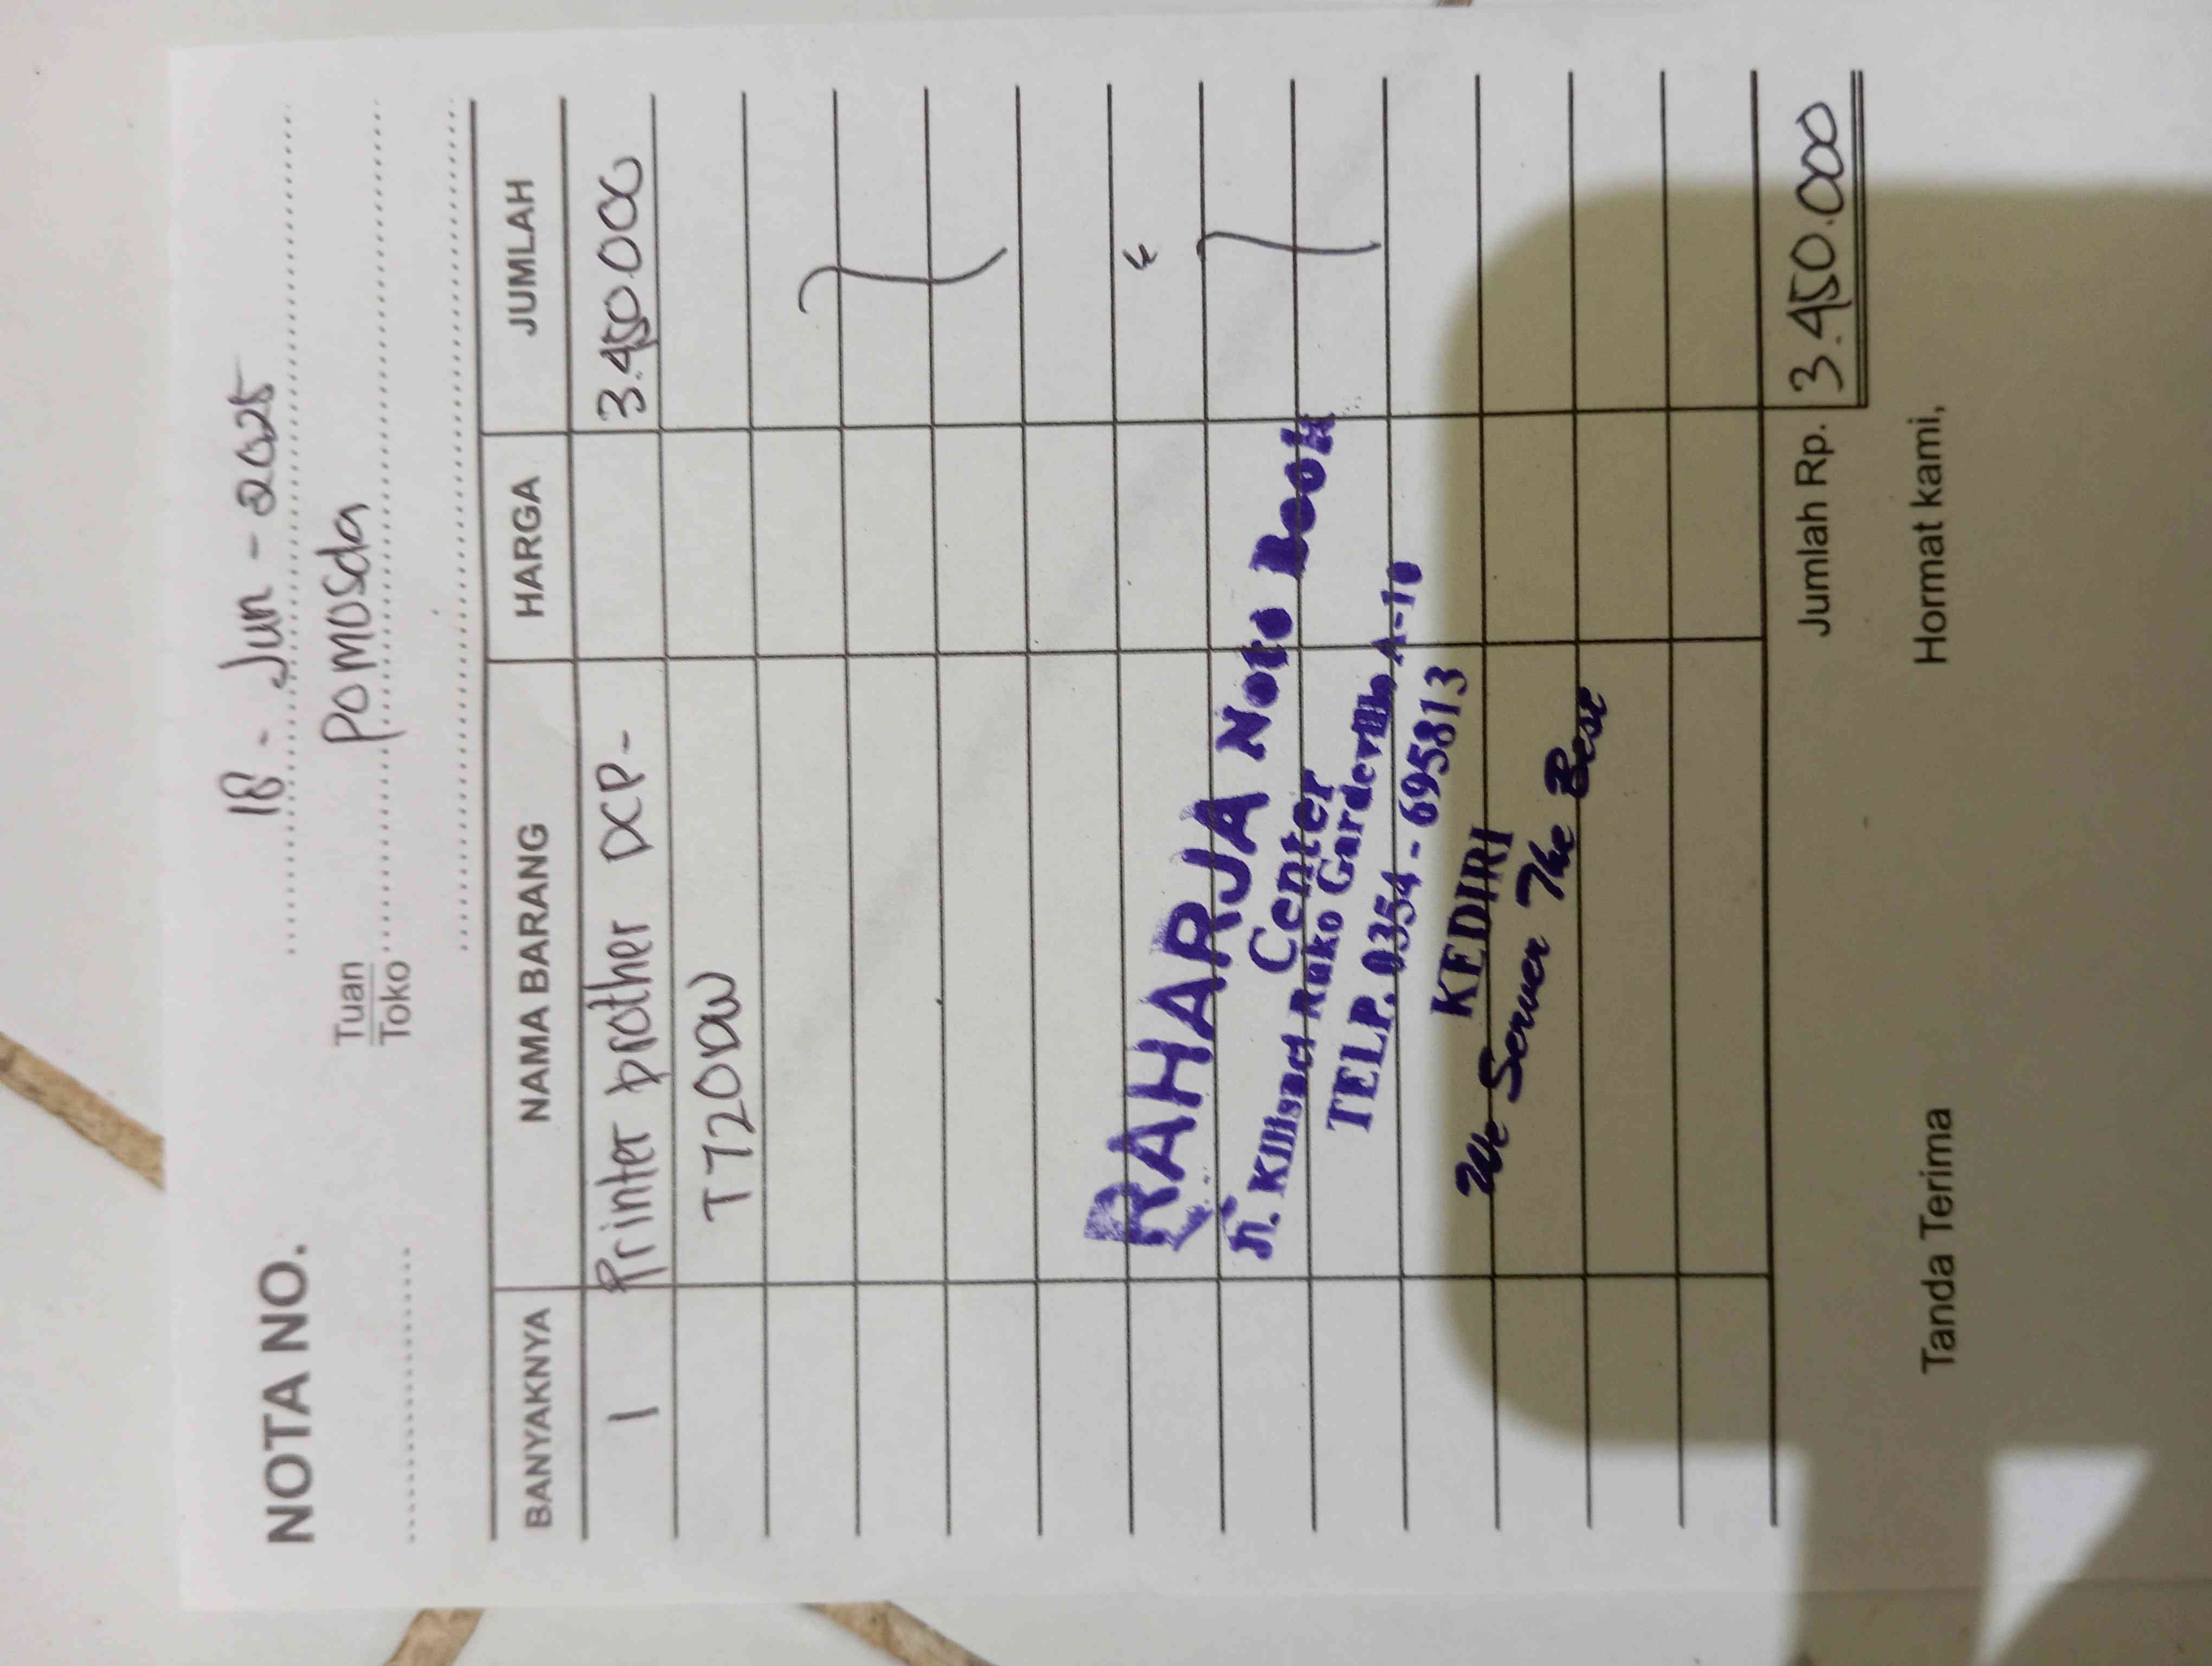 NOTA NO.
18 - Jun - 2025
Tuan
Toko
Pomosda
BANYAKNYA NAMA BARANG HARGA JUMLAH
1 Printer brother DCP- 3.450.000
T720DW
RAHARJA Note Book
Center
Jl. Kilisuci Ruko Gardevilla A-10
TELP. 0354 - 695813
KEDIRI
We Server The Best
Jumlah Rp. 3.450.000
Tanda Terima Hormat kami,